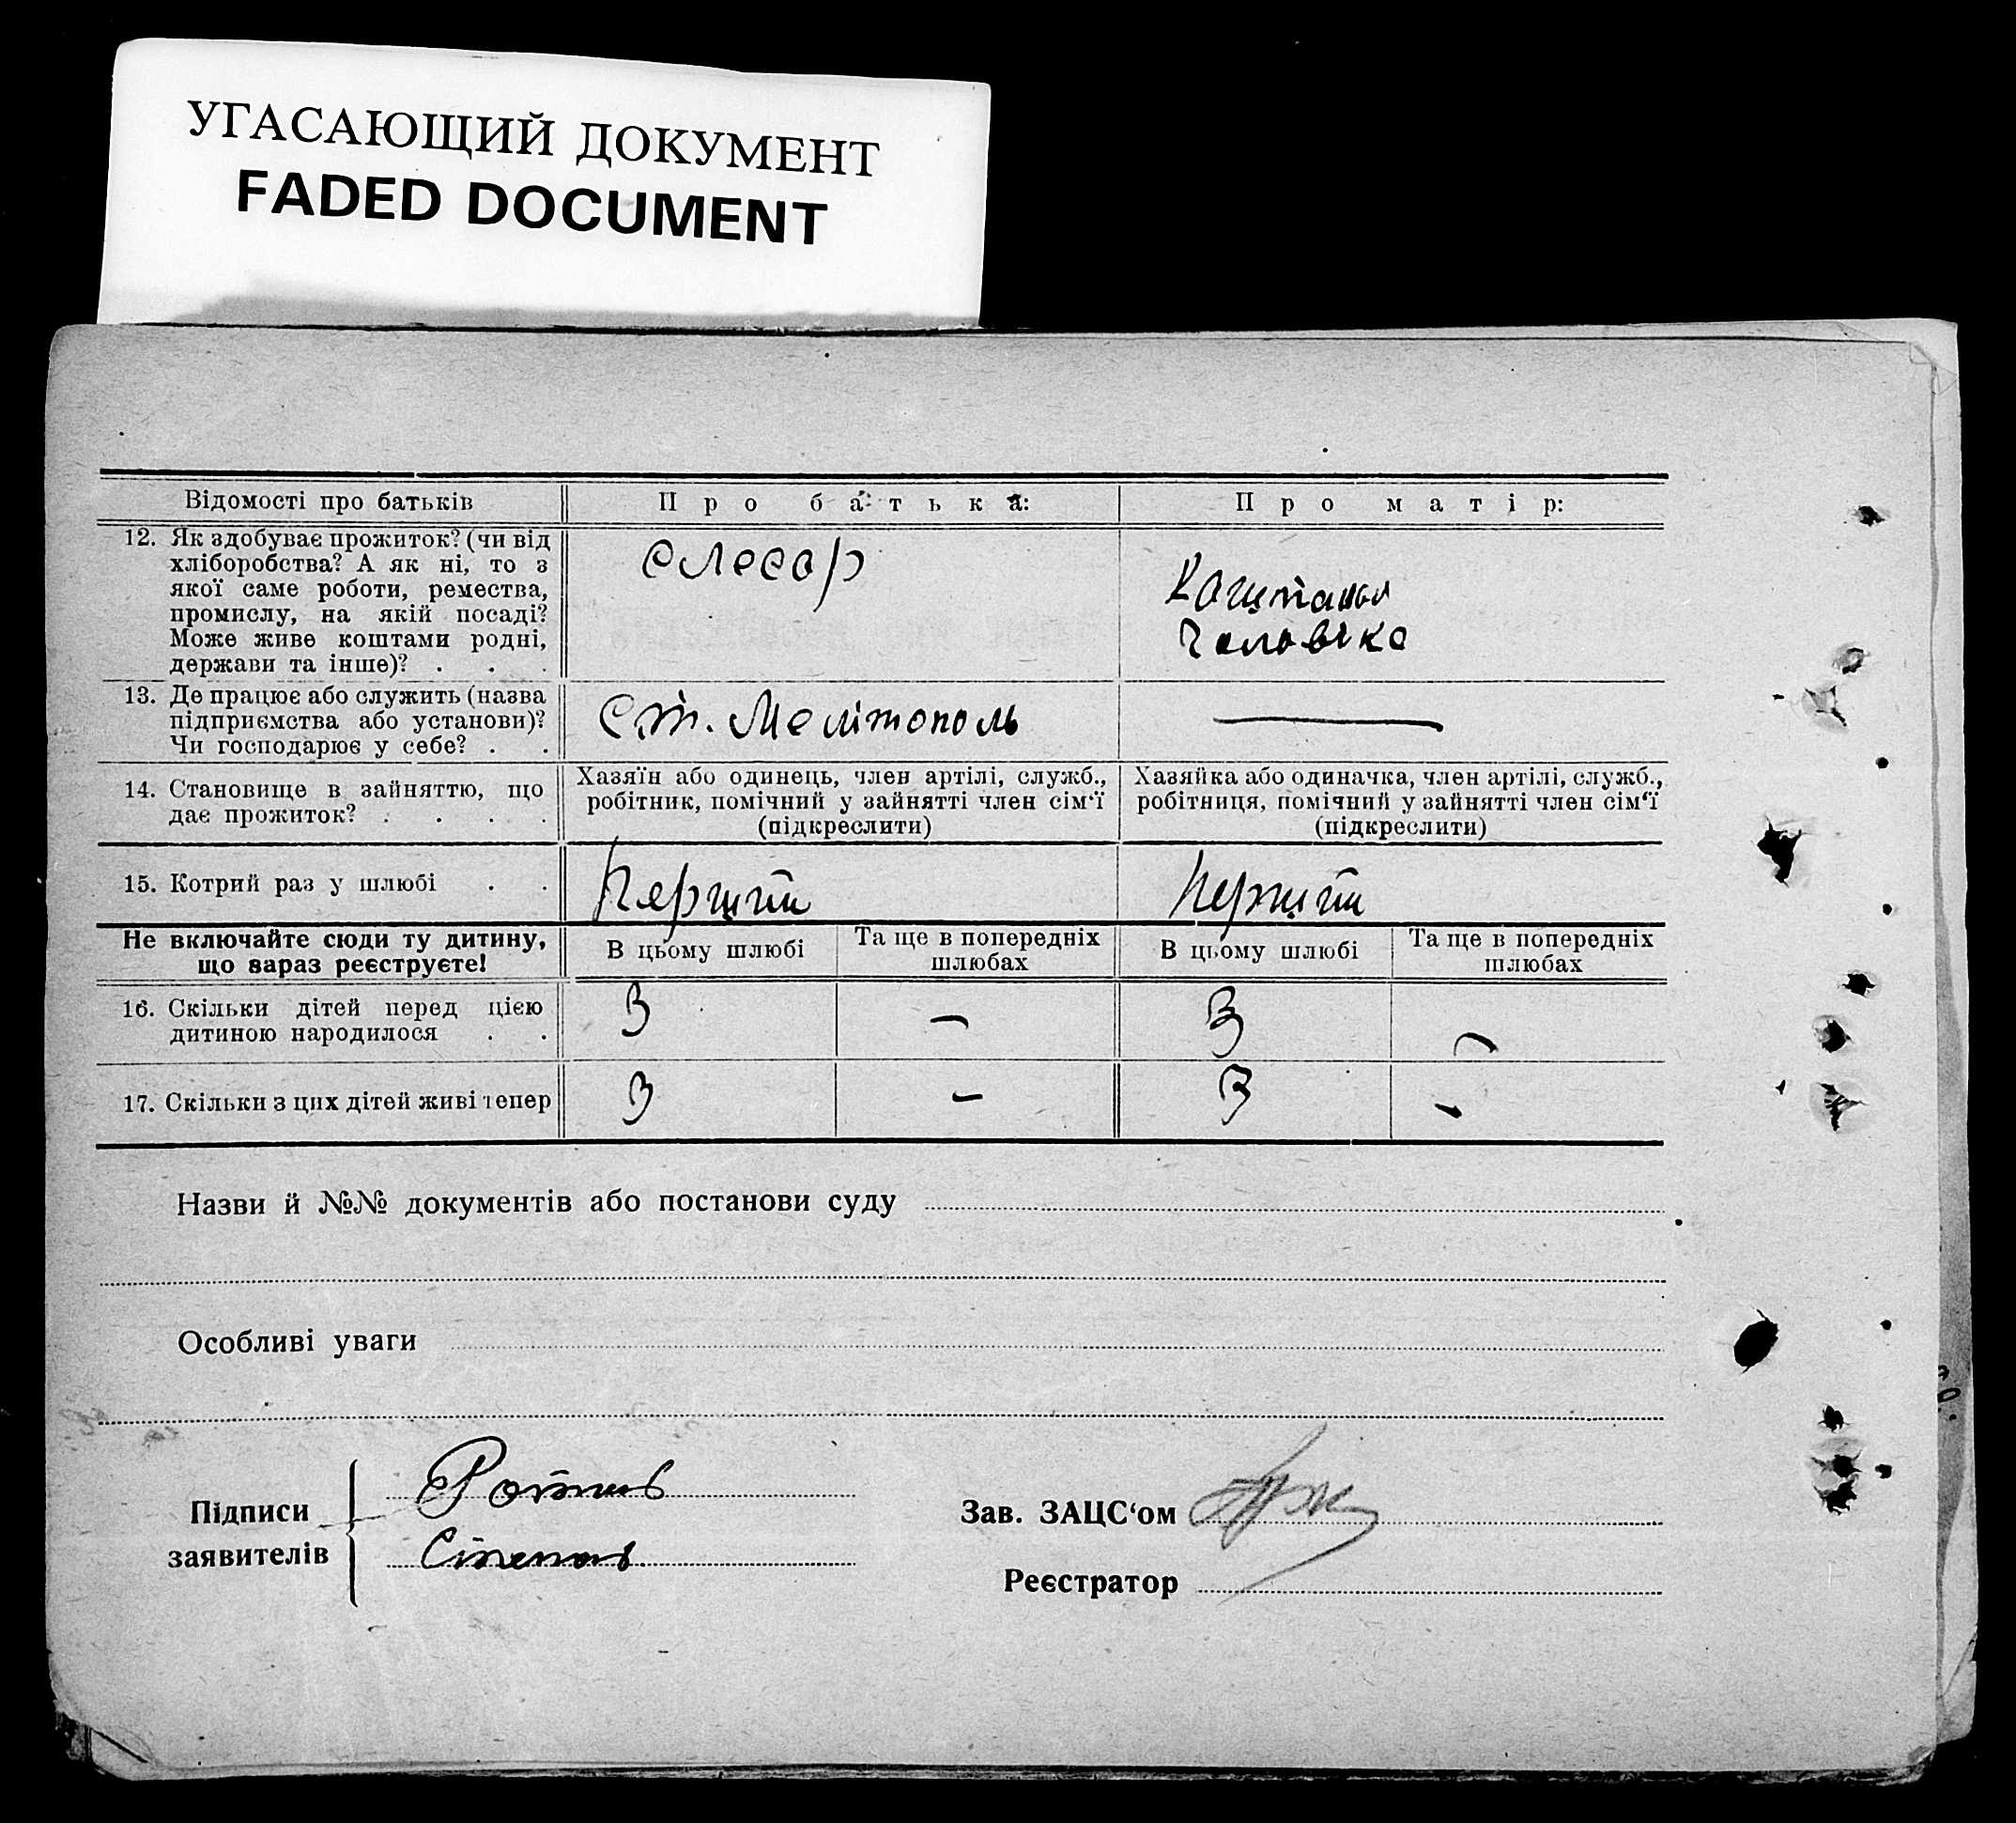 УГАСАЮЩИЙ ДОКУМЕНТ
FADED DOCUMENT
Відомості про батьків
Про батька:
Про матір:
12. Як здобуває прожиток? (чи від
хліборобства? А як ні, то з
якої саме роботи, ремества,
промислу, на якій посаді?
Може живе коштами родні,
держави та інше)? . . .
слесар
Коштами
Чоловіка
13. Де працює або служить (назва
підприємства або установи)?
Чи господарює у себе? . .
ст. Мелітополь
—
14. Становище в зайняттю, що
дає прожиток? . . . .
Хазяїн або одинець, член артілі, служб.,
робітник, помічний у зайнятті член сім‘ї
(підкреслити)
Хазяйка або одиначка, член артілі, служб.,
робітниця, помічний у зайнятті член сім‘ї
(підкреслити)
15. Котрий раз у шлюбі . .
Перший
Перший
Не включайте сюди ту дитину,
що зараз реєструєте!
В цьому шлюбі
Та ще в попередніх
шлюбах
В цьому шлюбі
Та ще в попередніх
шлюбах
16. Скільки дітей перед цією
дитиною народилося . .
3
—
3
—
17. Скільки з цих дітей живі тепер
3
-
3
-
Назви й №№ документів або постанови суду
Особливі уваги
Підписи
заявителів
Зав. ЗАЦС‘ом
Реєстратор